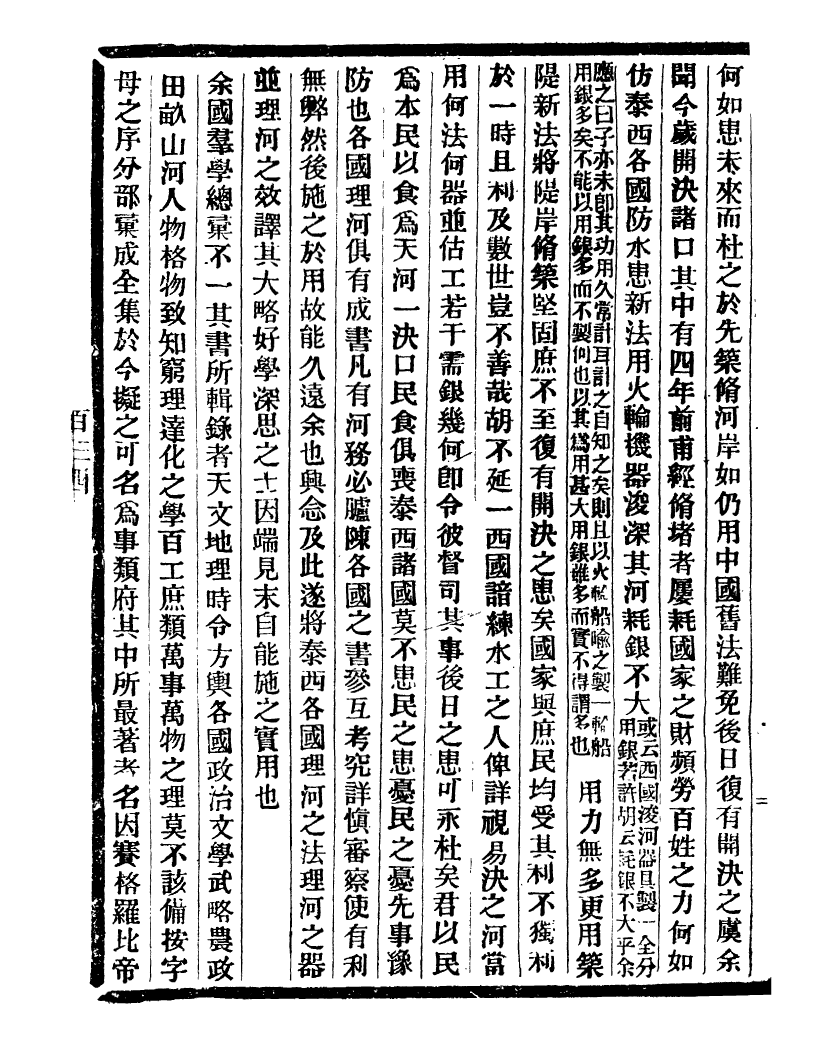 何如患未來而杜之於先築脩河岸如仍用中國舊法難免後日復有開決之虞余
聞今歲開決諸口其中有四年前甫經脩堵者屢耗國家之財頻勞百姓之力何如
仿泰西各國防水患新法用火輪機器浚深其河耗銀不大或云西國浚河器具製一全分用銀若許胡云耗銀不大乎余
應之曰子亦未卽其功用久常計耳計之自知之矣則且以火輪船喻之製一輪船用銀多矣不能以用銀多而不製何也以其爲用甚大用銀雖多而實不得謂多也用力無多更用築
隄新法將隄岸脩築堅固庶不至復有開決之患矣國家與庶民均受其利不獲利
於一時且利及數世豈不善哉胡不延一西國諳練水工之人俾詳視易決之河當
用何法何器並估工若干需銀幾何卽令彼督司其事後日之患可永杜矣君以民
爲本民以食爲天河一決口民食俱喪泰西諸國莫不患民之患憂民之憂先事豫
防也各國理河俱有成書凡有河務必臚陳各國之書參互考究詳愼審察使有利
無弊然後施之於用故能久遠余也興念及此遂將泰西各國理河之法理河之器
並理河之效譯其大略好學深思之士因端見末自能施之實用也
余國羣學總彙不一其書所輯錄者天文地理時令方輿各國政治文學武略農政
田畝山河人物格物致知窮理達化之學百工庶類萬事萬物之理莫不該備按字
母之序分部彙成全集於今擬之可名爲事類府其中所最著者名因賽格羅比帝
百三四